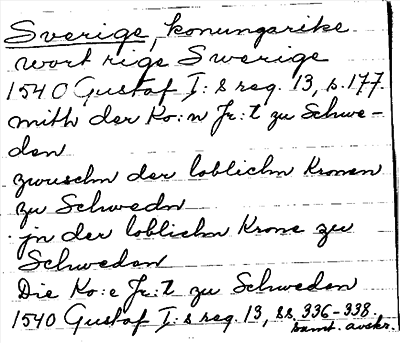 Sverige, konungarike
wort rige Swerige
1540 Gustaf I:s reg. 13, s. 177.
mith der Ko:n Jr:t zu Schwe-
den
zwuschn der loblichn Kronen
zu Schwedn
jn der loblichn Krone zu
Schweden
Die Ko:e Jr:t zu Schweden
1540 Gustaf I:s reg. 13, ss. 336-338.
samt. avskr.